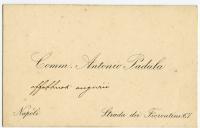 Comm. Antonio Padula
affettuosi auguri
Napoli
Strada dei Fiorentini 67